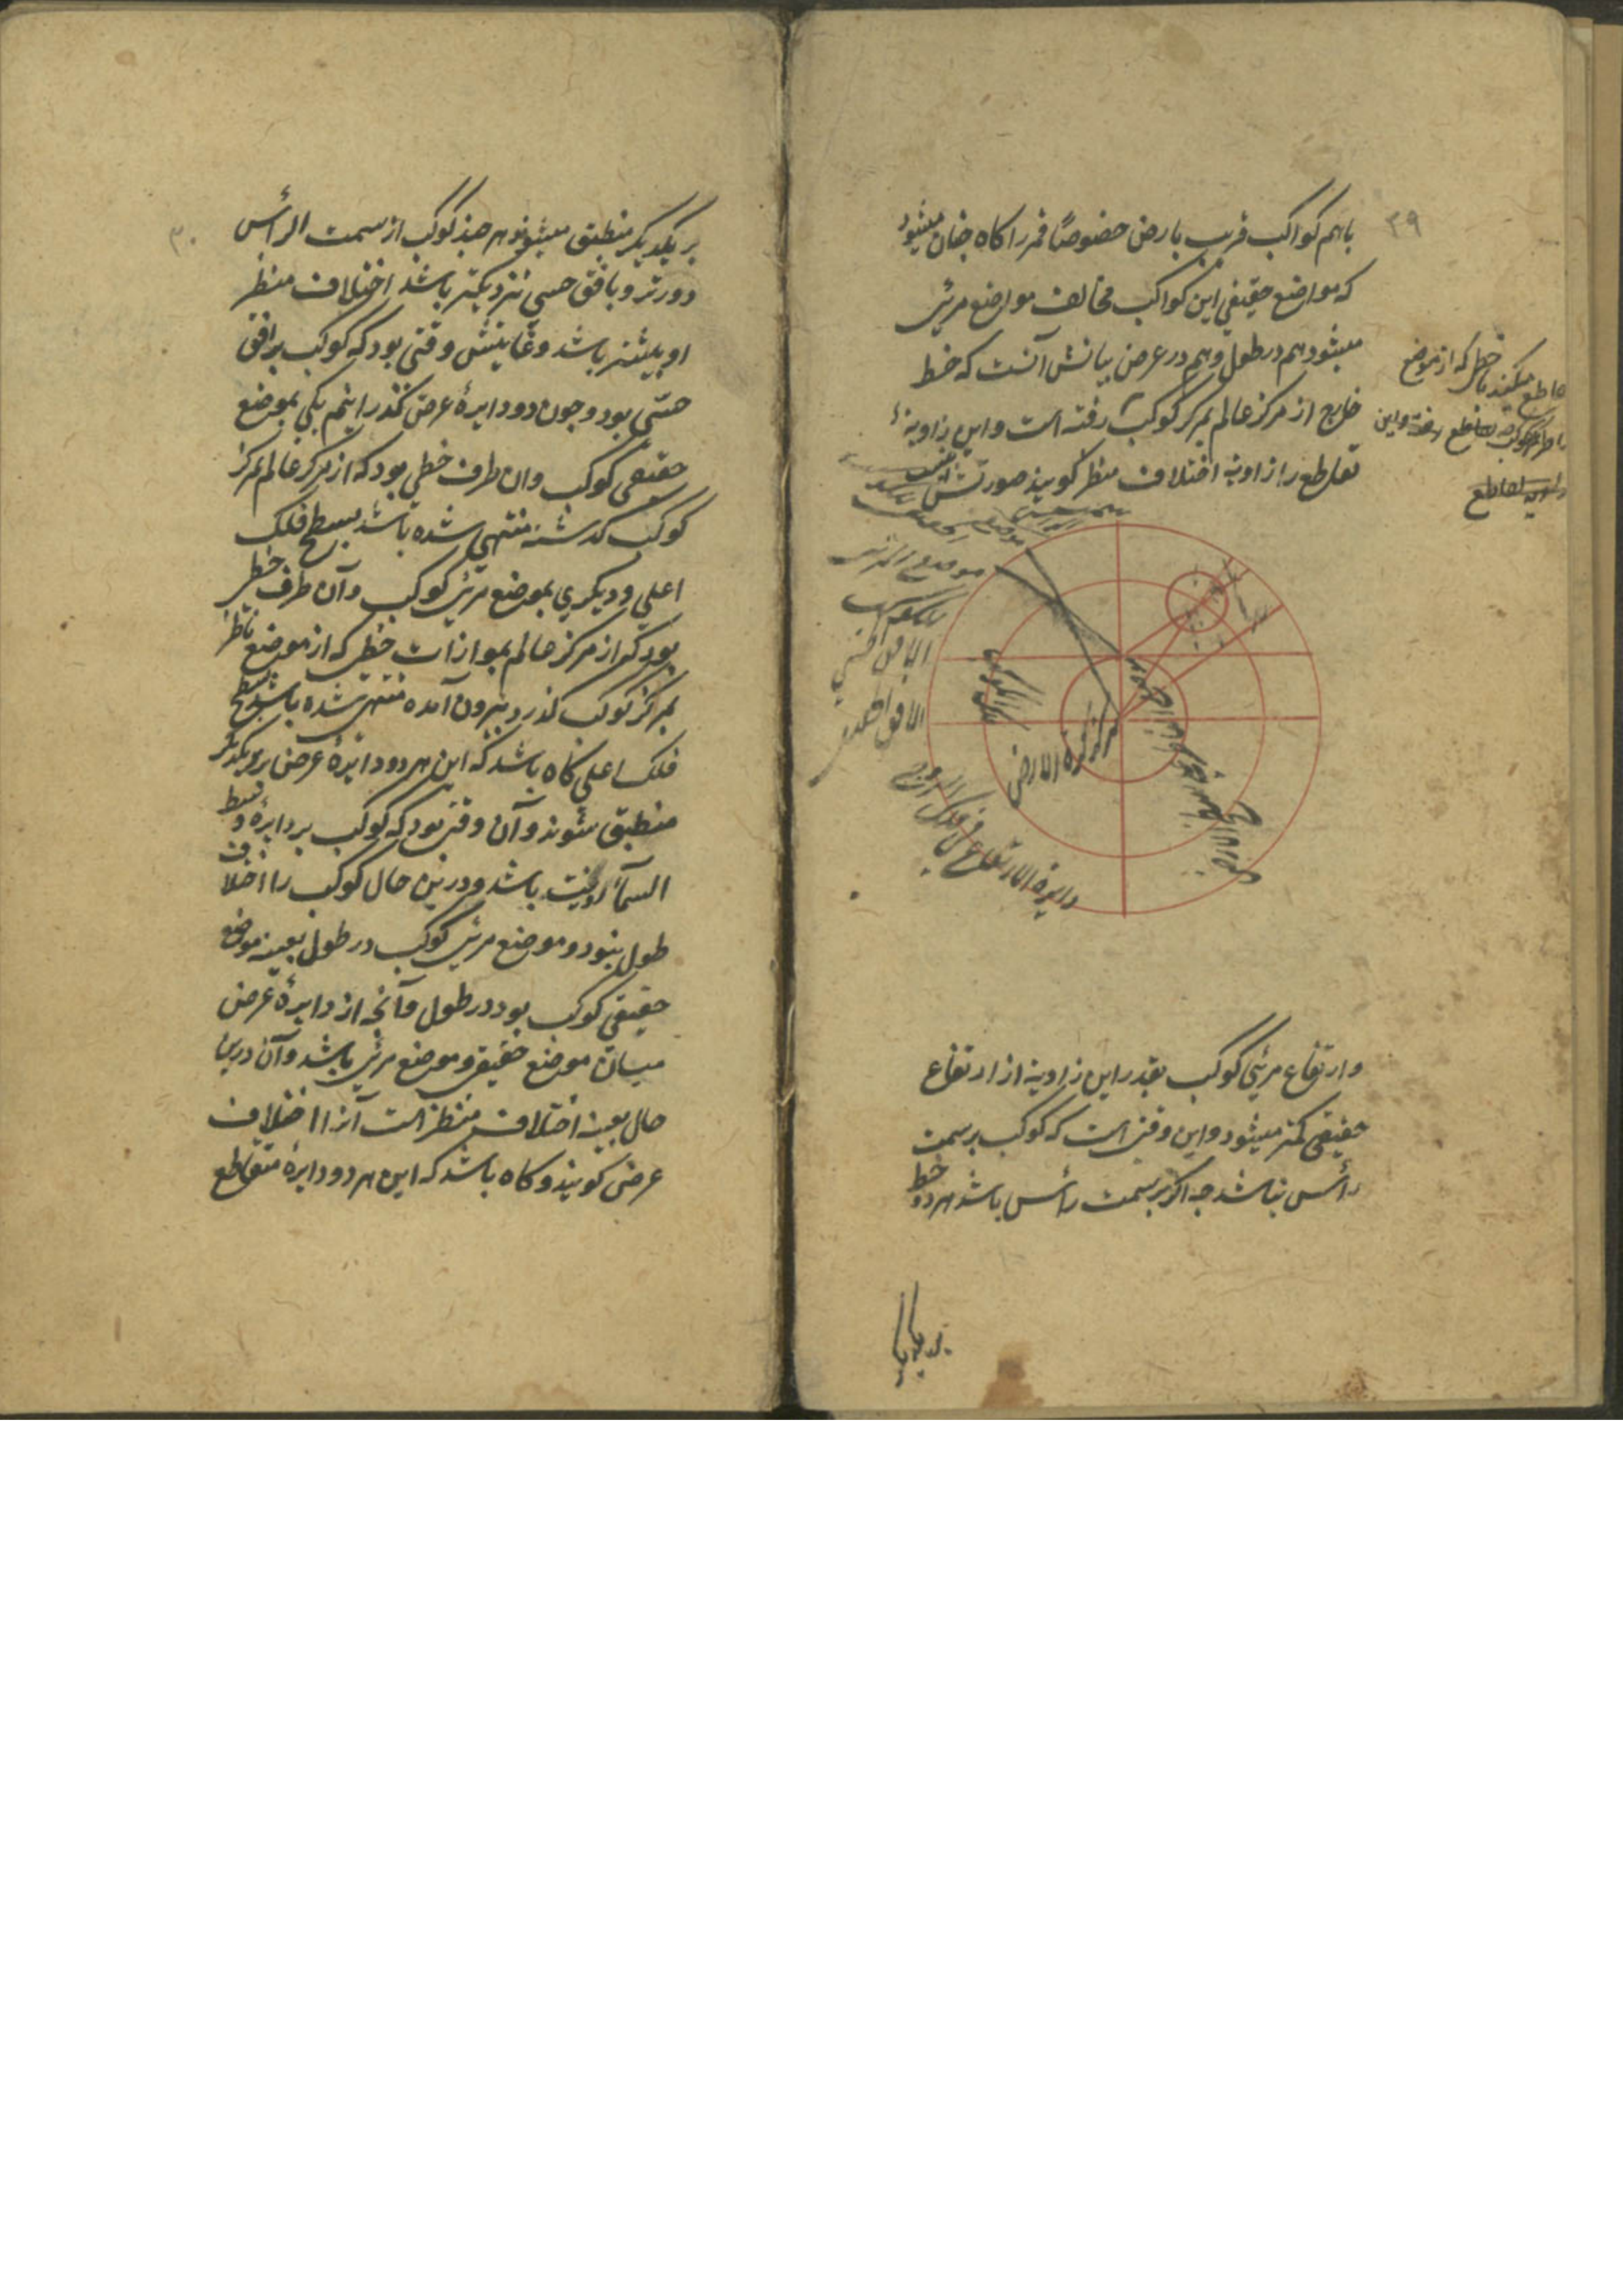 ۳۹
باهم کواکب قریب بارض خصوصًا قمر را کاه چنان میشود
که مواضع حقیقی این کواکب مخالف مواضع مرئی
میشود هم در طول و هم در عرض بیانش آنست که خط
خارج از مرکز عالم بمرکز کوکب رفته است و این زاویهٔ
تقاطع را زاویهٔ اختلاف منظر کویند صورتش
تقاطع میکند با خطی که از موضع
موضع المرئی
للکوکب
الافق الحسی
الافق الحقیقی
مرکز کرة الارض
دایرة الارتفاع فی فلک البروج
و ارتفاع مرئی کوکب بقدر این زاویه از ارتفاع
حقیقی کمتر میشود و این وقتی است که کوکب بر سمت
رأس نباشد چه اکر بر سمت رأس باشد هر دو خط
بر یکدیکر
۳۰
بر یکدیکر منطبق میشوند و هر چند کوکب از سمت الرأس
دورتر و بافق حسی نزدیکتر باشد اختلاف منظر
او بیشتر باشد و غایتش وقتی بود که کوکب بر افق
حسّی بود و چون دو دایرهٔ عرض کذرانیم یکی بموضع
حقیقی کوکب و ان طرف خطی بود که از مرکز عالم بمرکز
کوکب کذشته منتهی شده باشد بسطح فلک
اعلی و دیکری بموضع مرئی کوکب و آن طرف خطی
بود که از مرکز عالم بموازات خطی که از موضع ناظر
بمرکز کوکب کذرد بیرون آمده منتهی شده باشد بسطح
فلک اعلی کاه باشد که این هر دو دایرهٔ عرض بر یکدیکر
منطبق شوند و آن وقتی بود که کوکب بر دایرهٔ وسط
السمآء رؤیت باشد و درین حال کوکب را اختلاف
طول نبود و موضع مرئی کوکب در طول بعینه موضع
حقیقی کوکب بود در طول و آنچه از دایرهٔ عرض
میان موضع حقیقی و موضع مرئی باشد و آن درین
حال بعینه اختلاف منظر است آنرا اختلاف
عرض کویند و کاه باشد که این هر دو دایرهٔ متقاطع